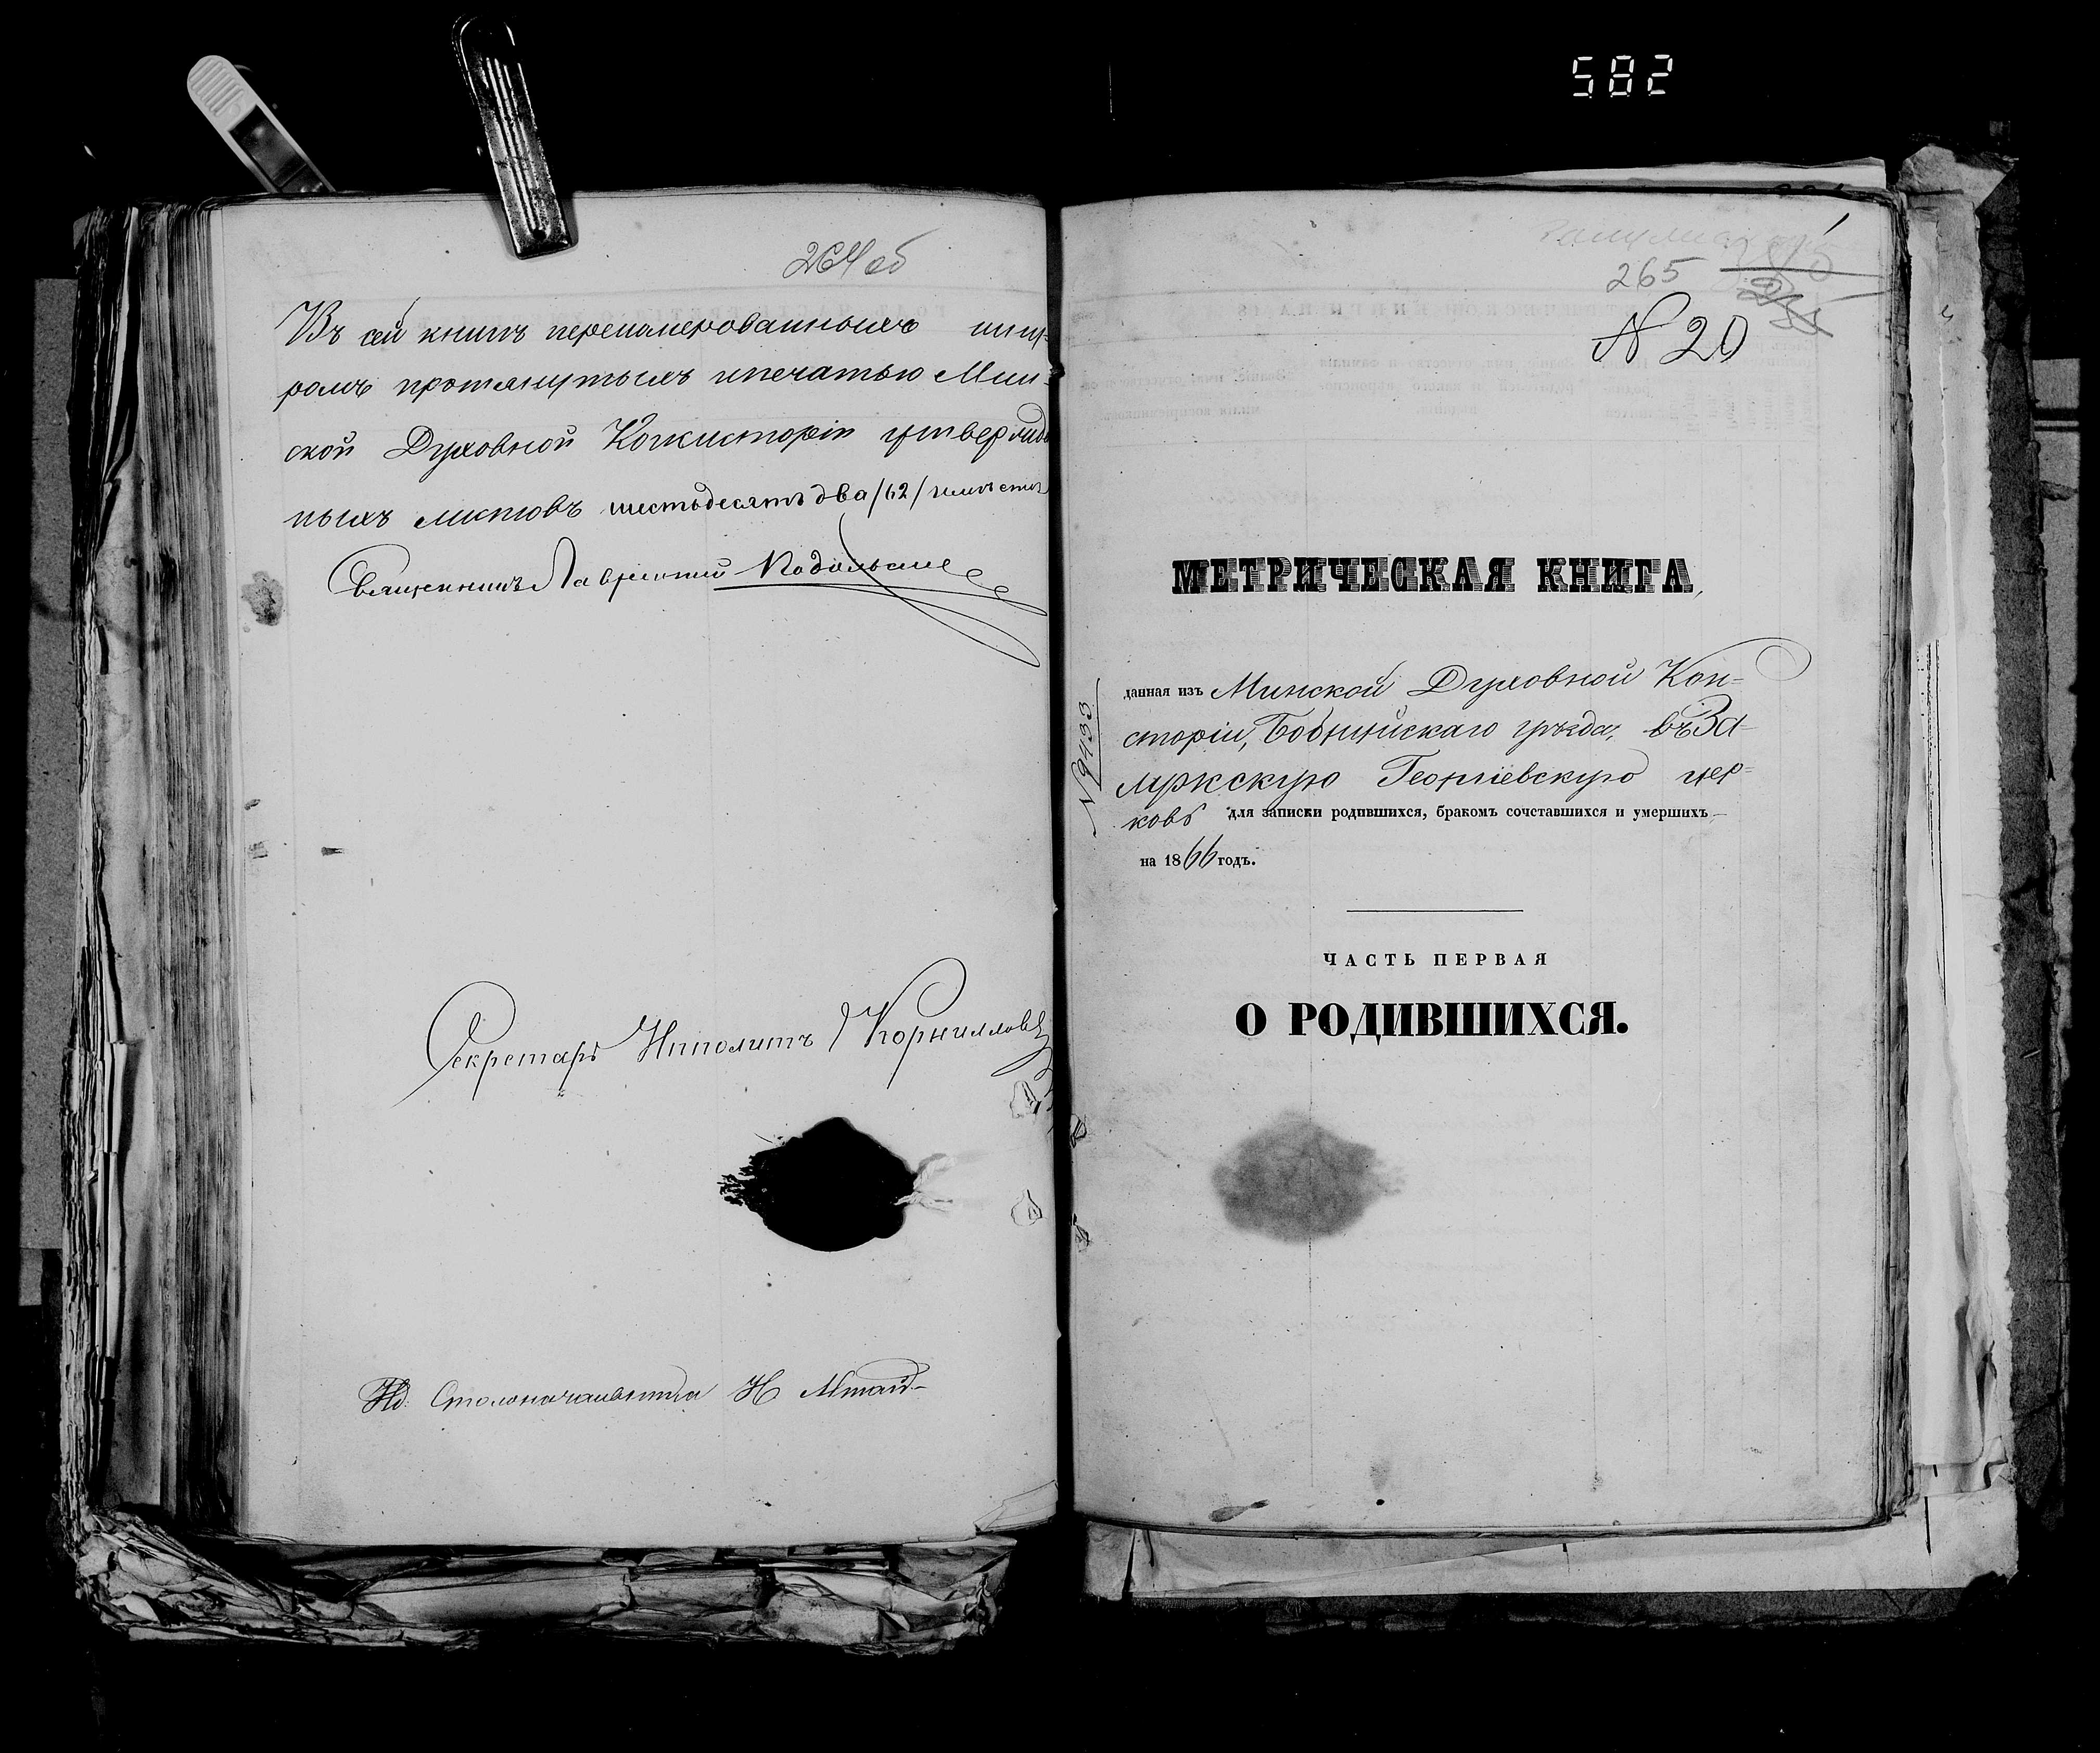 582
264 об
Въ сей книгѣ перенумерованныхъ шну-
ромъ протянутыхъ и печатью Мин-
ской Духовной Консисторіи утвержден-
ныхъ листовъ шестьдесятъ два /62/
Священникъ Лаврентій Подольскі
Секретарь Ипполитъ Корниллов
Ид. Столоначальника Н
265
N 20
МЕТРИЧЕСКАЯ КНИГА,
N 9433
данная изъ Минской Духовной Кон-
сторіи, Бобруйскаго уѣзда, въ За-
лужскую Георгіевскую цер-
ковь для записки родившихся, бракомъ сочетавшихся и умершихъ
на 1866 годъ.
ЧАСТЬ ПЕРВАЯ
О РОДИВШИХСЯ.